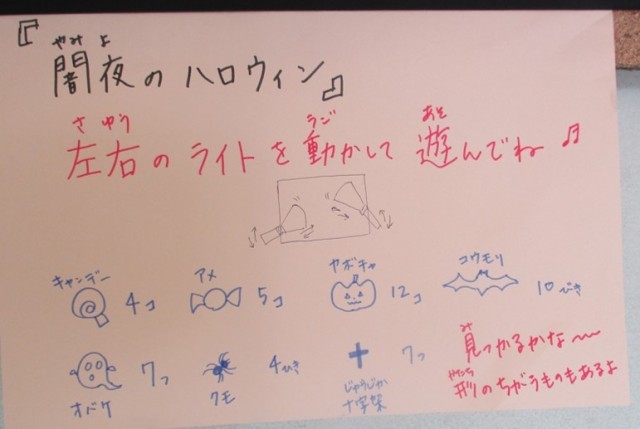 『
やみ よ
闇夜のハロウィン』
さ ゆう うご あそ
左右のライトを動かして遊んでね♬
キャンデー 4コ
アメ 5コ
カボチャ 12コ
コウモリ 10ぴき
オバケ 7つ
クモ 4ひき
じゅうじか
十字架 7つ
み
見つかるかな〜
かたち
形のちがうものもあるよ